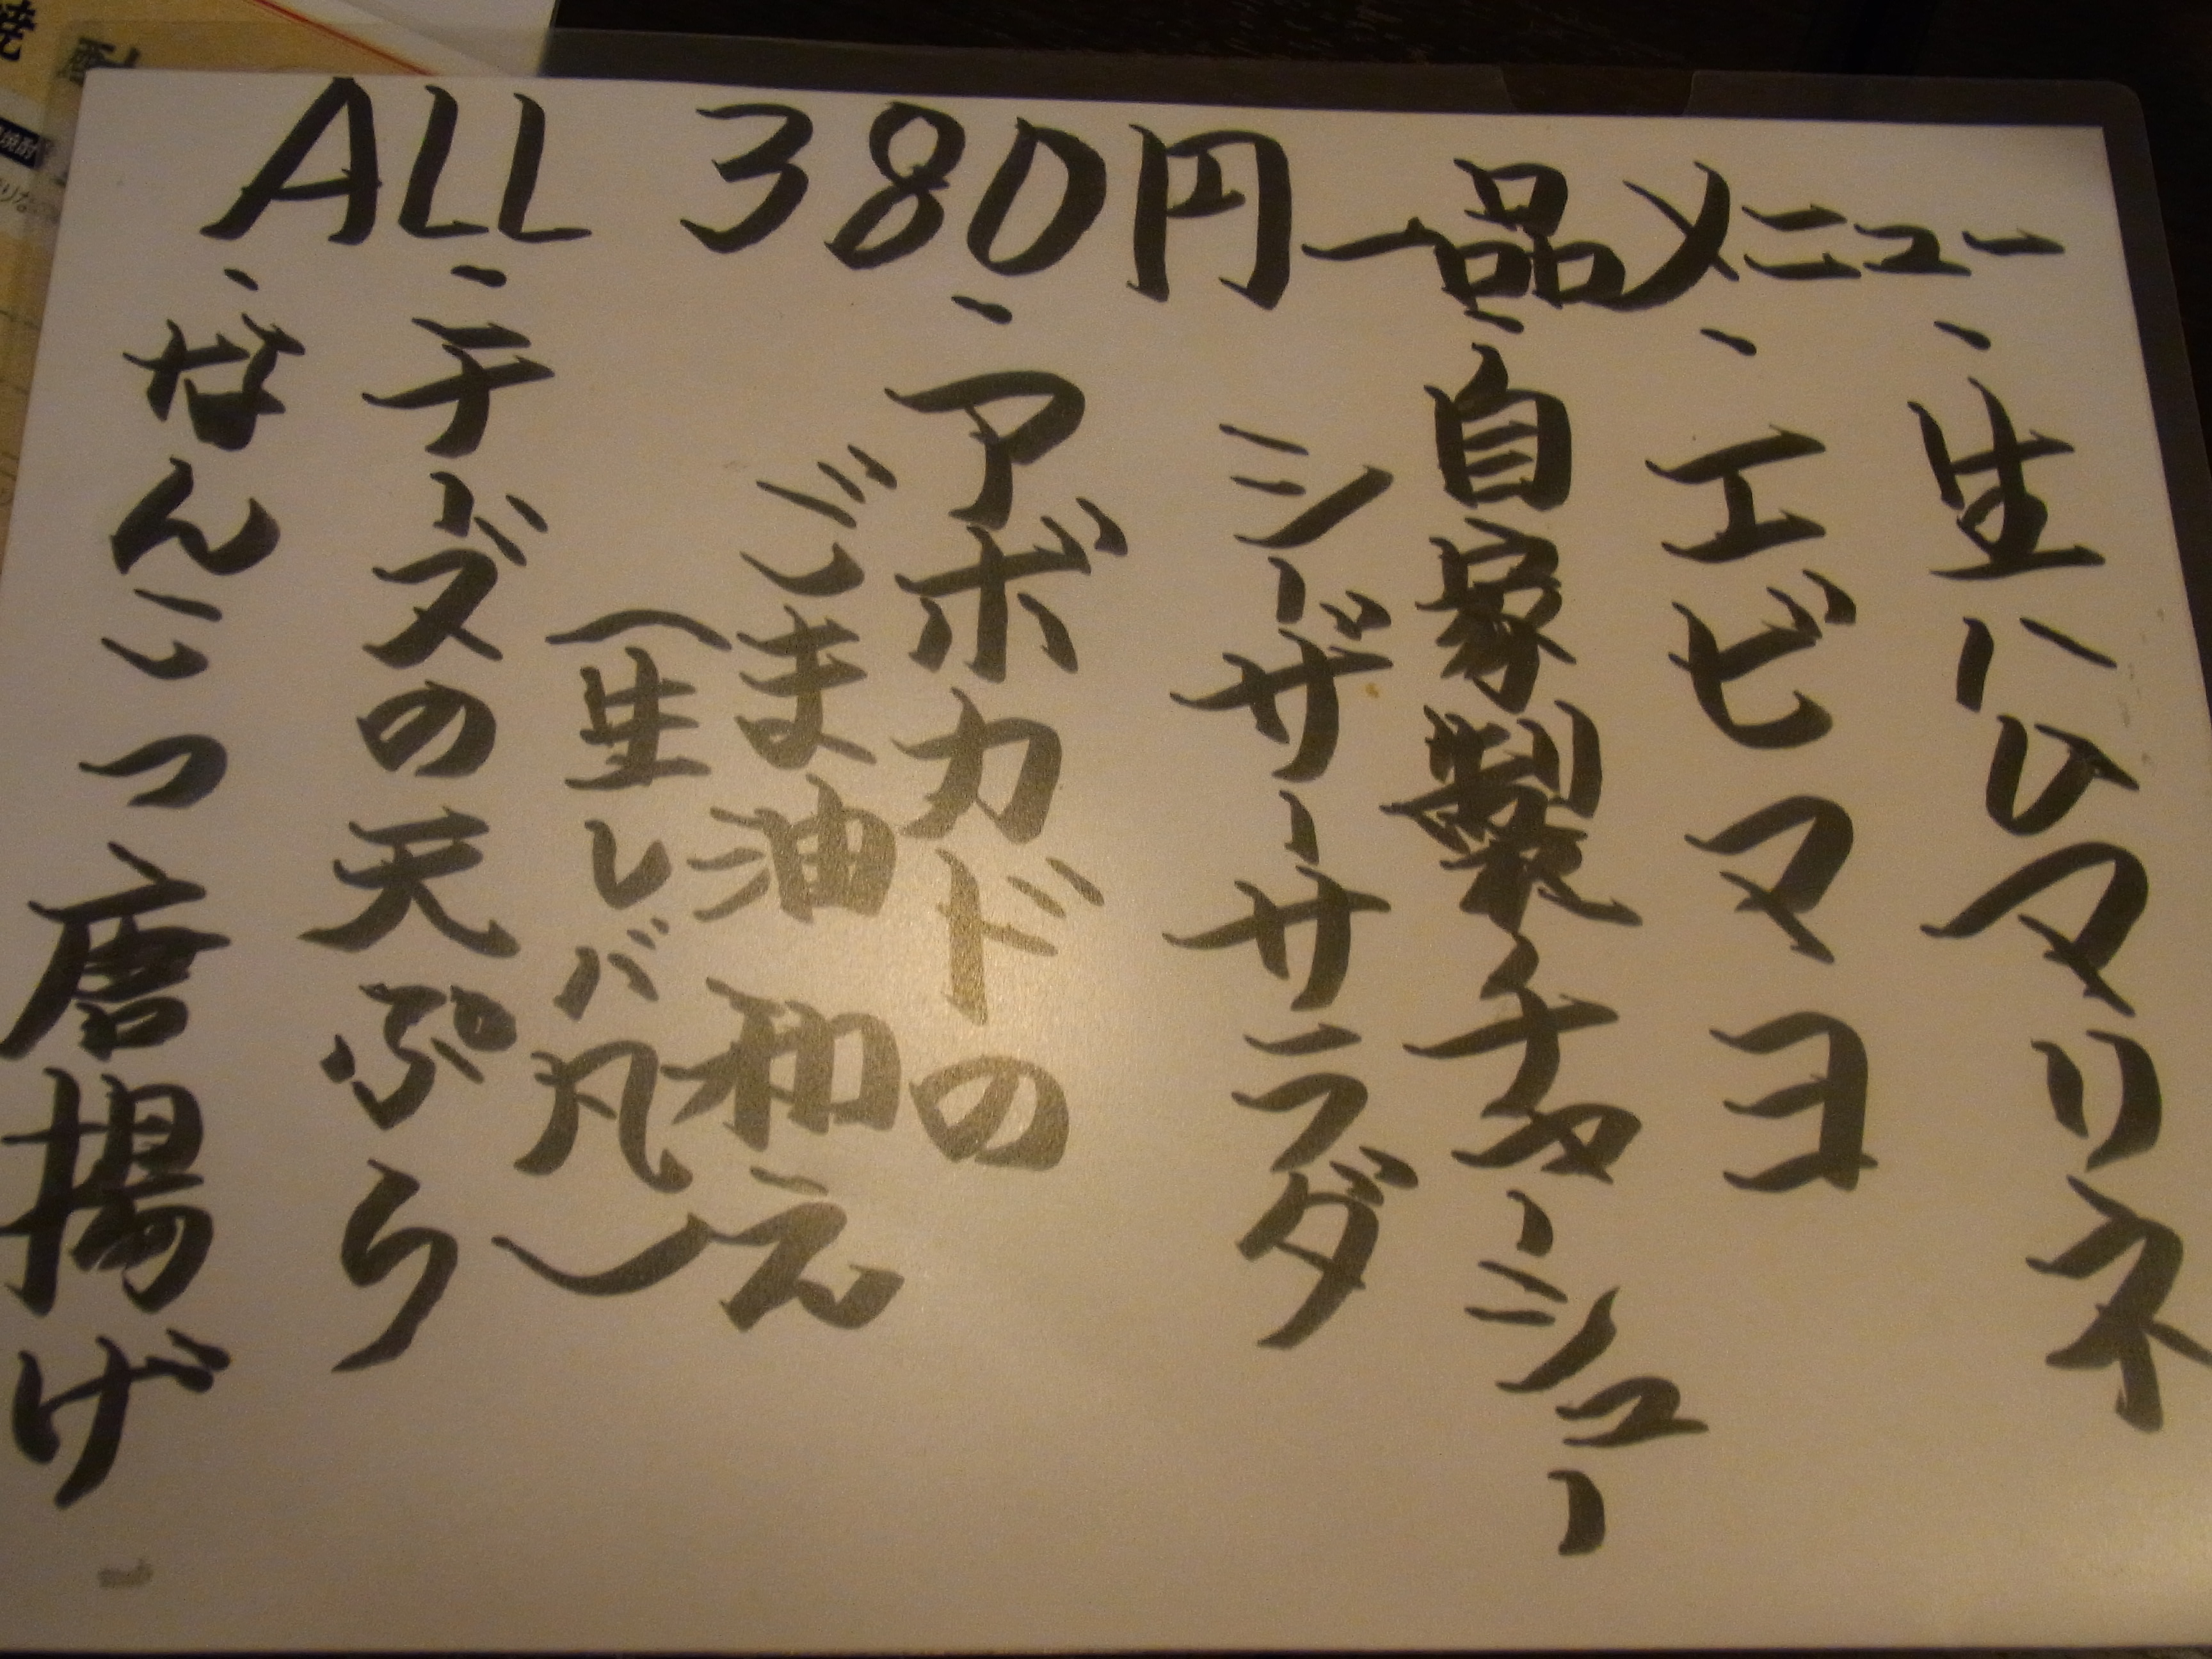 ALL 380円一品メニュー
・生ハムマリネ
・エビマヨ
・自家製チャーシュー
シーザーサラダ
・アボカドの
ごま油和え
(生レバ風)
・チーズの天ぷら
・なんこつ唐揚げ
焼酎
焼酎